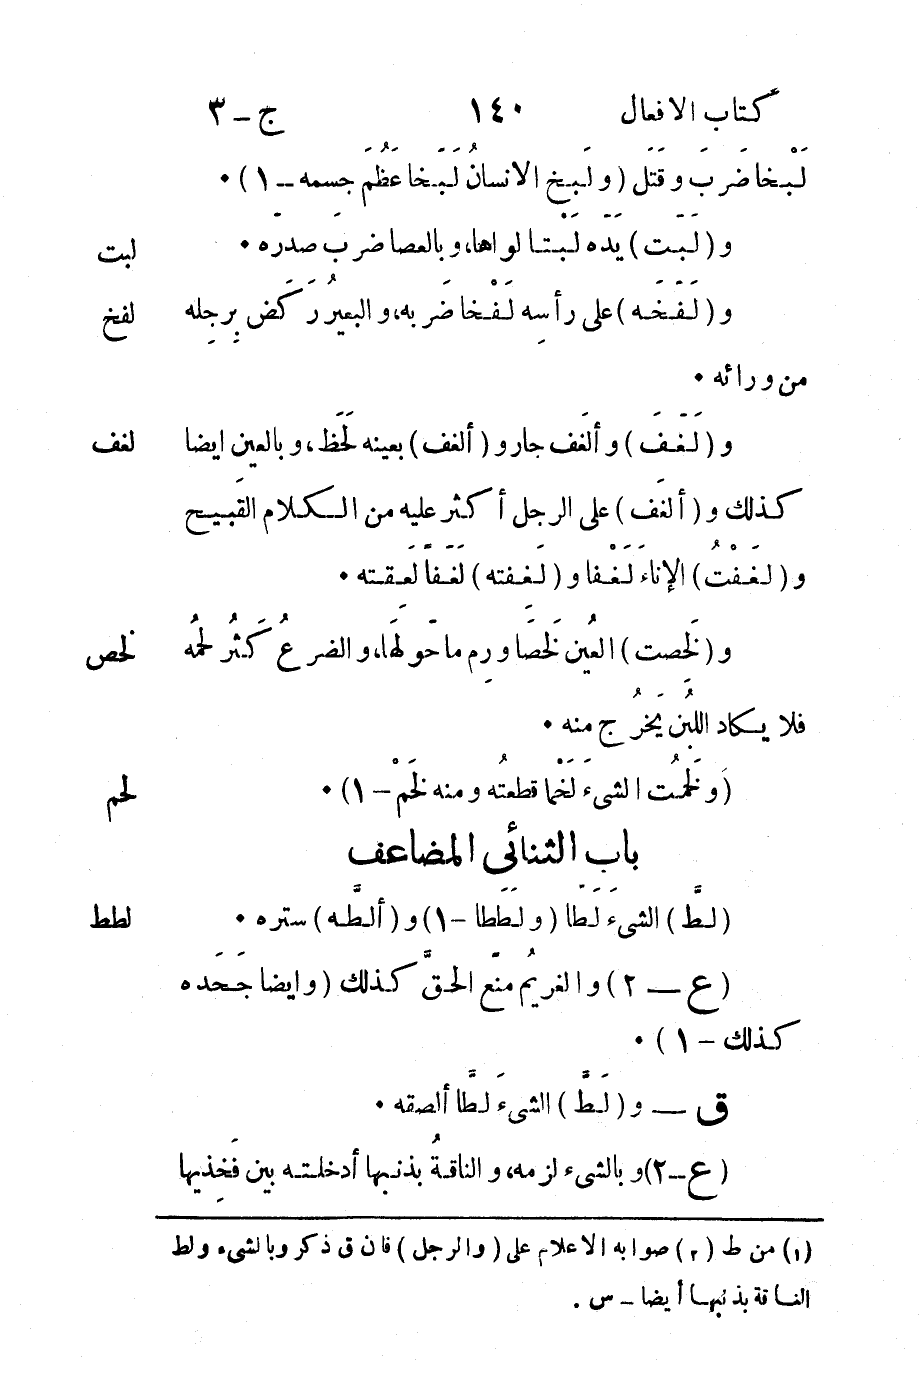 كتاب الافعال ١٤٠ ج - ٣
لَبْخا ضَرَبَ وقَتَل (ولَبَخ الانسانُ لَبَخا عَظُم جسمه - ١) •
و (لَبَت) يَدَه لَبْتا لواها، وبالعصا ضَرَب صدرَه • لبت
و (لَفَخَه) على رأسِه لَفْخا ضَربه، والبعيرُ رَكَض بِرِجله لفخ
من ورائه •
و (لَغَفَ) وألغَف جار و (ألغف) بعينه لَحَظ، وبالعين ايضا لغف
كذلك و (ألغَف) على الرجل أكثر عليه من الكلام القَبيح
و (لغَفْتُ) الإناءَ لَغْفا و (لَغفته) لَغَفاً لَعَقته •
و (لَخِصت) العَينُ لَخَصا ورِم ما حَولَها، والضرعُ كَثُر لحمُه لخص
فلا يكاد اللبَنُ يَخرُج منه •
(وَلَخَمْتُ الشىءَ لَخْما قطعتُه ومنه لَخْمٌ - ١) • لخم
باب الثنائى المضاعف
(لطَّ) الشىءَ لَطّا (ولَطَطا - ١) و (ألطَّه) ستره • لطط
(ع - ٢) والغريمُ مَنَع الحقَّ كذلك (وايضا جَحَده
كذلك - ١) •
ق - و (لَطَّ) الشىءَ لطَّا ألصقه •
(ع - ٢) وبالشىء لزمه، والناقةُ بذنبها أدخلته بين فَخِذيها
(١) من ط (٢) صوابه الاعلام على (والرجل) فان ق ذكر وبالشىء ولط
الناقة بذنبها أيضا - س .